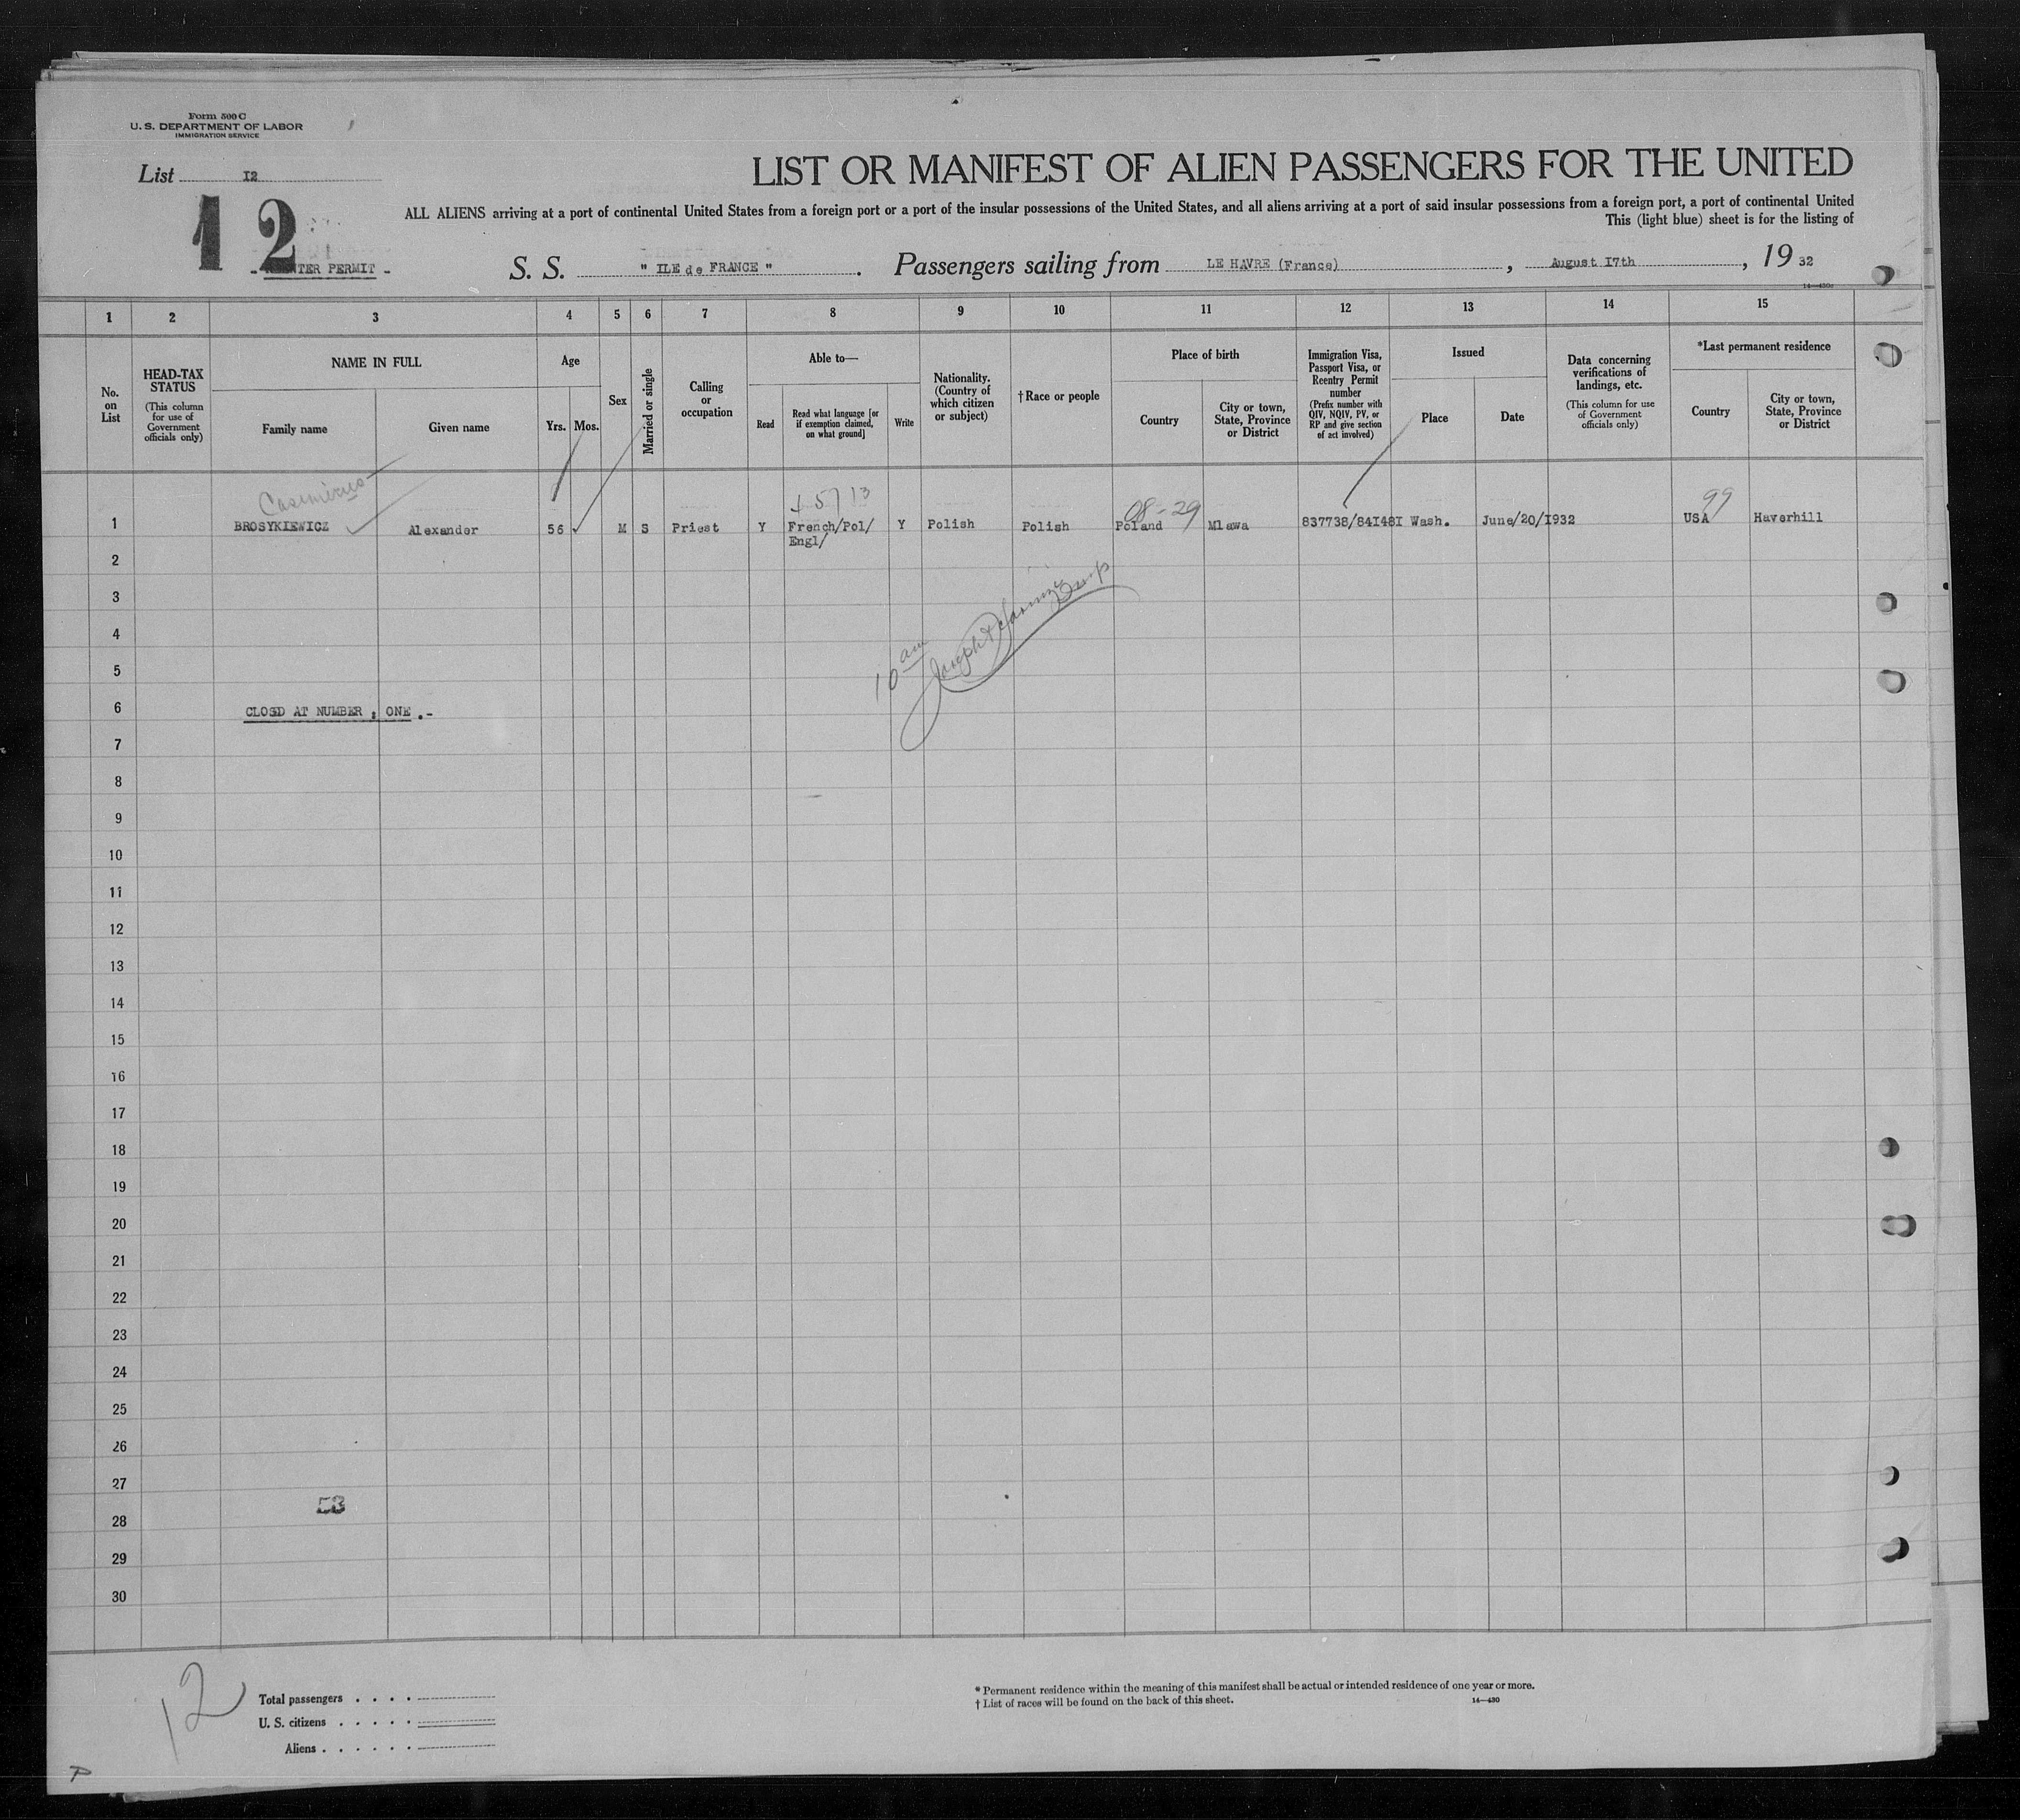 Form 500 C
U. S. DEPARTMENT OF LABOR
IMMIGRATION SERVICE
List I2
12
TER PERMIT -
LIST OR MANIFEST OF ALIEN PASSENGERS FOR THE UNITED
ALL ALIENS arriving at a port of continental United States from a foreign port or a port of the insular possessions of the United States, and all aliens arriving at a port of said insular possessions from a foreign port, a port of continental United
This (light blue) sheet is for the listing of
S. S. " ILE de FRANCE ". Passengers sailing from LE HAVRE (France), August I7th, 19 32
14—430c
1 2 3 4 5 6 7 8 9 10 11 12 13 14 15
No. on List
HEAD-TAX STATUS
(This column for use of Government officials only)
NAME IN FULL
Family name
Given name
Age
Yrs. Mos.
Sex
Married or single
Calling or occupation
Able to—
Read
Read what language [or if exemption claimed, on what ground]
Write
Nationality. (Country of which citizen or subject)
†Race or people
Place of birth
Country
City or town, State, Province or District
Immigration Visa, Passport Visa, or Reentry Permit number
(Prefix number with QIV, NQIV, PV, or RP and give section of act involved)
Issued
Place
Date
Data concerning verifications of landings, etc.
(This column for use of Government officials only)
*Last permanent residence
Country
City or town, State, Province or District
Casimirus
5713
08-29
99
1 BROSYKIEWICZ Alexander 56 M S Priest Y French/Pol/ Y Polish Polish Poland Mlawa 837738/84I48I Wash. June/20/I932 USA Haverhill
Engl/
2
3
4
10 am
5
6 CLOSD AT NUMBER : ONE .-
7
8
9
10
11
12
13
14
15
16
17
18
19
20
21
22
23
24
25
26
27
28
29
30
12
Total passengers . . . .
U. S. citizens . . . . .
Aliens . . . . . .
* Permanent residence within the meaning of this manifest shall be actual or intended residence of one year or more.
† List of races will be found on the back of this sheet.
14—430
P